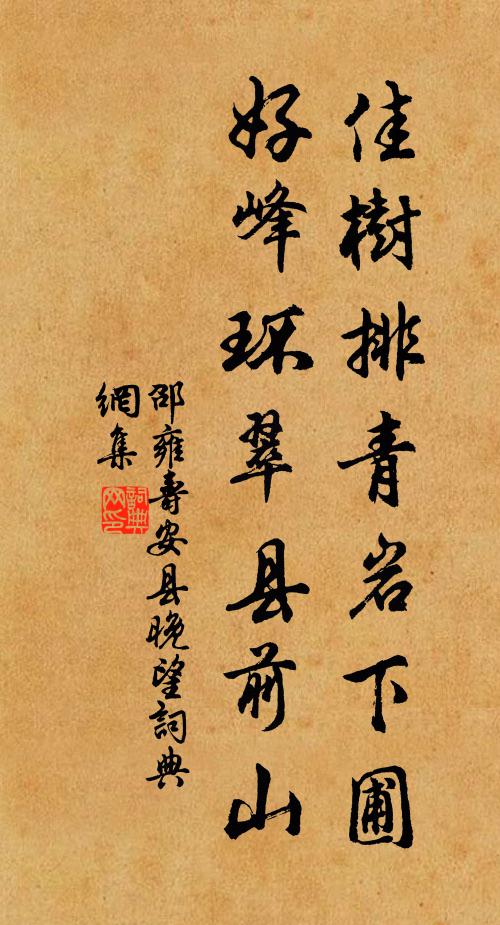 佳樹排青岩下圃
好峰环翠县前山
邵雍壽安县晚望詞典
網集
詞典
网印